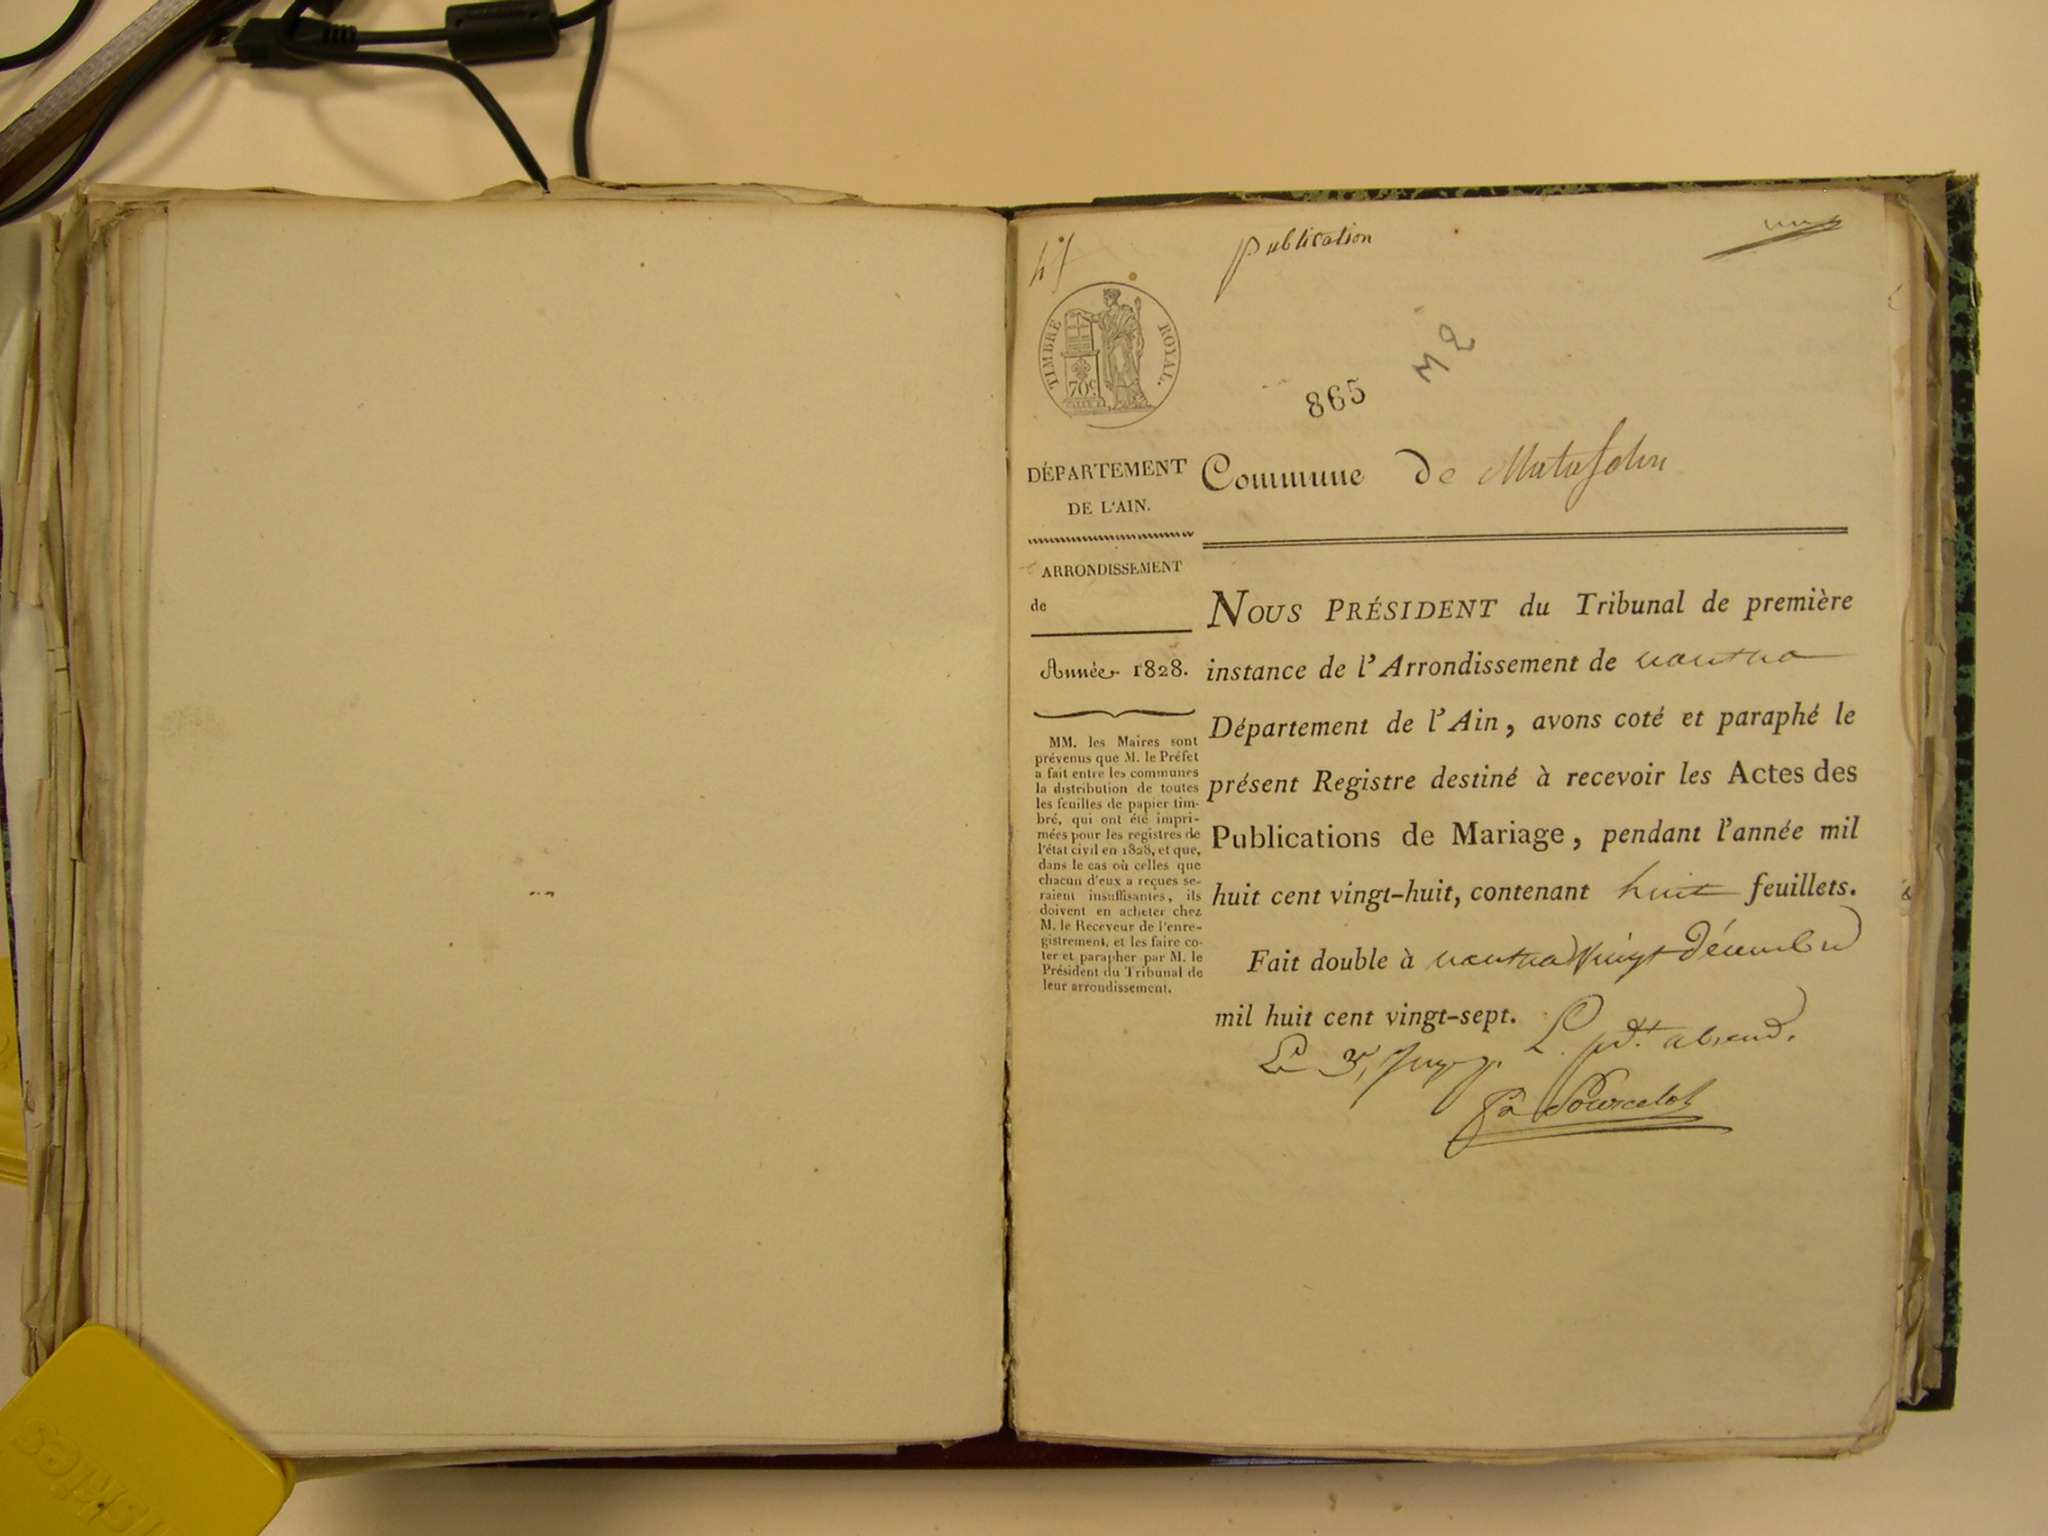 publication
TIMBRE ROYAL.
70c.
865
DÉPARTEMENT
DE L'AIN.
ARRONDISSEMENT
de
Année 1828.
MM. les Maires sont
prévenus que M. le Préfet
a fait entre les communes
la distribution de toutes
les feuilles de papier tim-
bré, qui ont été impri-
mées pour les registres de
l'état civil en 1828, et que,
dans le cas où celles que
chacun d'eux a reçues se-
raient insuffisantes, ils
doivent en acheter chez
M. le Receveur de l'enre-
gistrement, et les faire co-
ter et parapher par M. le
Président du Tribunal de
leur arrondissement.
Commune de Matafelon
NOUS PRÉSIDENT du Tribunal de première
instance de l'Arrondissement de nantua
Département de l'Ain, avons coté et paraphé le
présent Registre destiné à recevoir les Actes des
Publications de Mariage, pendant l'année mil
huit cent vingt-huit, contenant huit feuillets.
Fait double à nantua vingt décembre
mil huit cent vingt-sept.